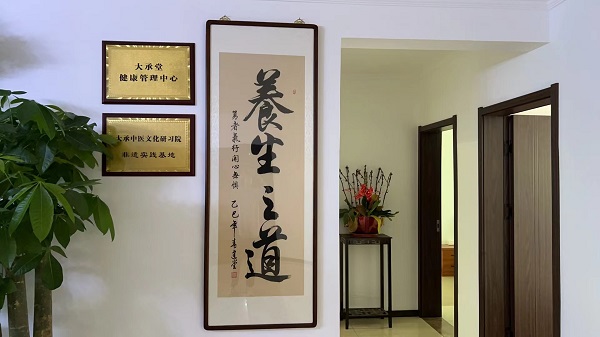 大承堂
健康管理中心
大承中医文化研习院
非遗实践基地
養生之道
乙巳年春